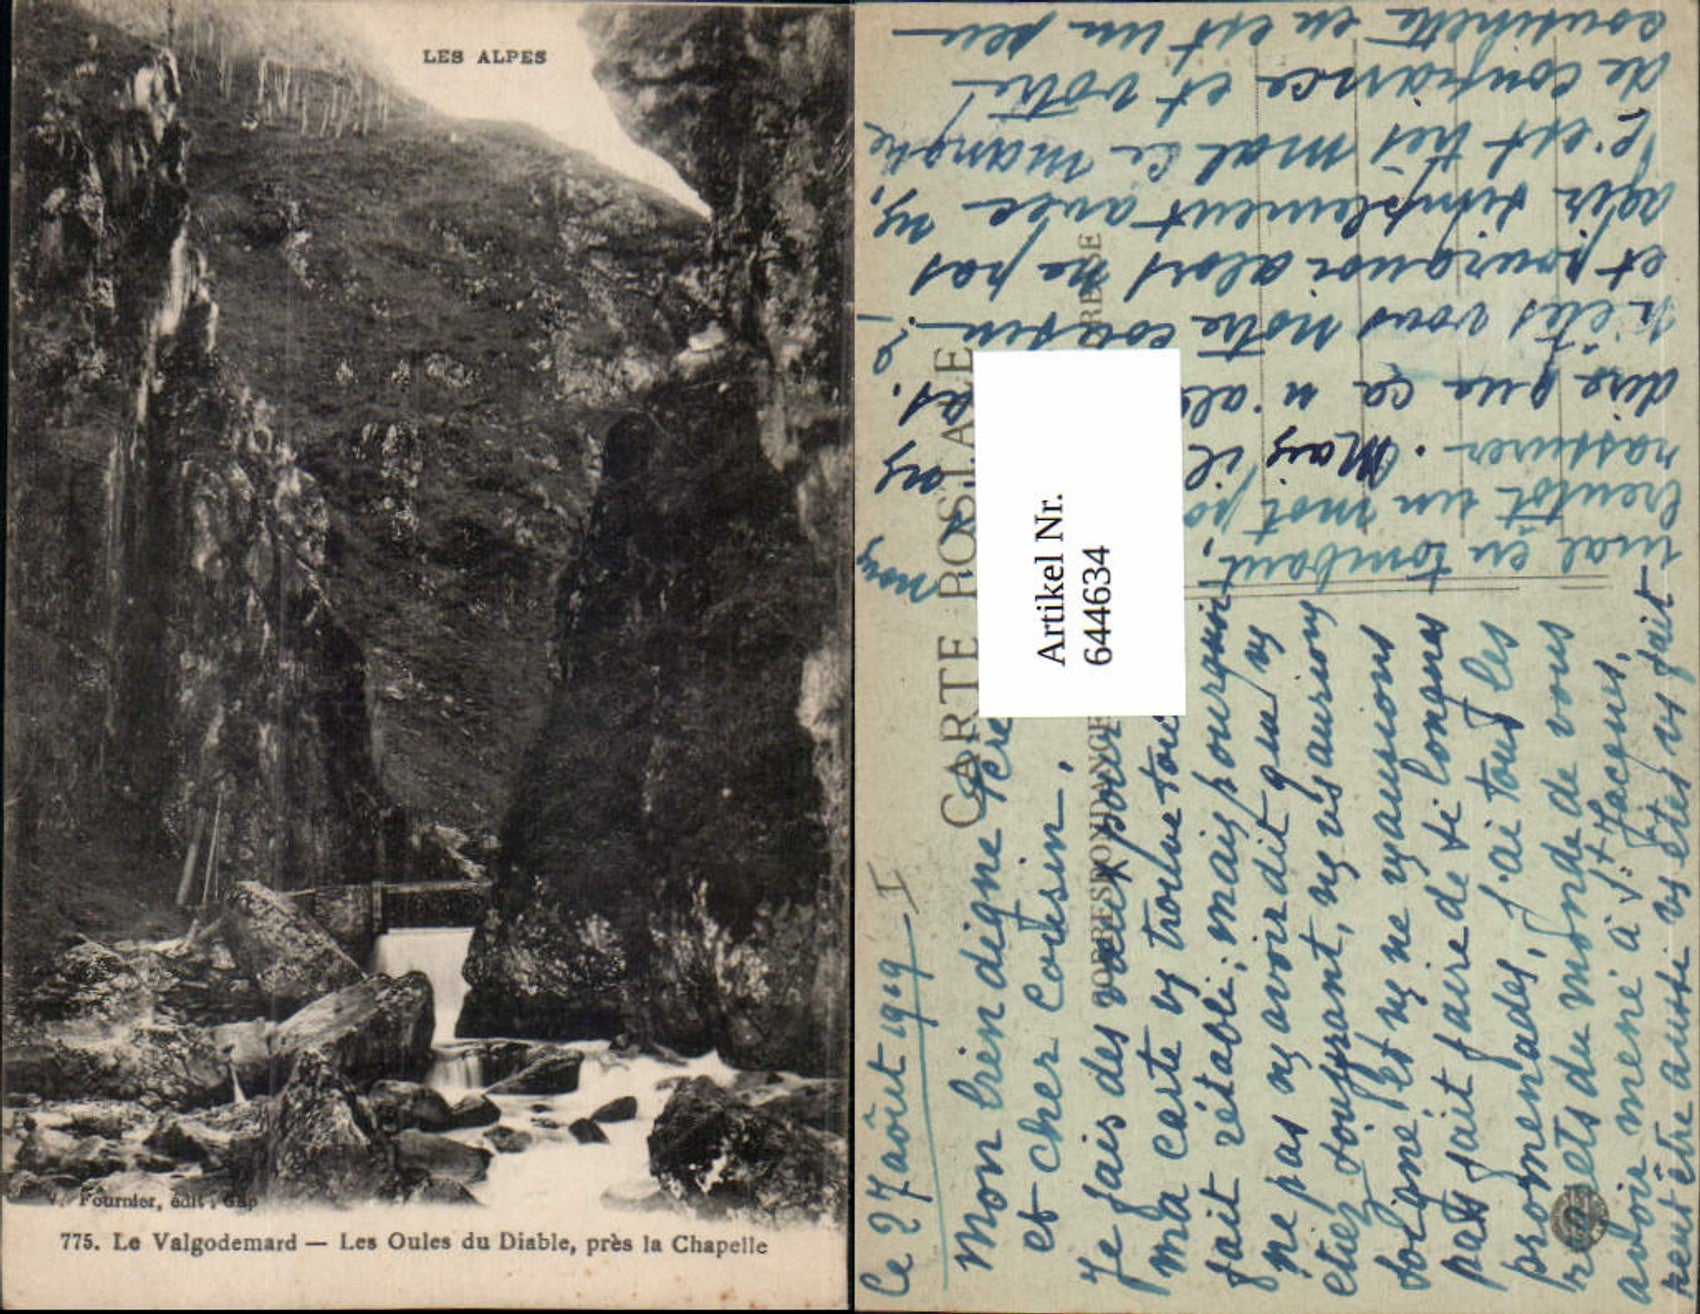 LES ALPES
V. Fournier, édit., Gap
775. Le Valgodemard — Les Oules du Diable, près la Chapelle
CARTE POSTALE
CORRESPONDANCE
Artikel Nr.
644634
Ce 27 août 1909
Mon bien digne Père
et cher Cousin,
Je fais des vœux pour
ma carte vs trouve tout
fait rétabli; mais pourquoi
ne pas ns avoir dit que vs
étiez souffrant, ns vs aurions
soigné et ns ne vs aurions
pas fait faire de si longues
promenades, j'ai tous les
regrets du monde de vous
avoir mené à St Jacques,
peut être aussi vs êtes vs fait
mal en tombant,
bientôt un mot po
rassurer. Mais il
dire que ça n'al
n'êtes vous notre cousin
et pourquoi alors ne pas
agir simplement avec ns,
c'est très mal ce manque
de confiance et votre
cousinette en est un peu